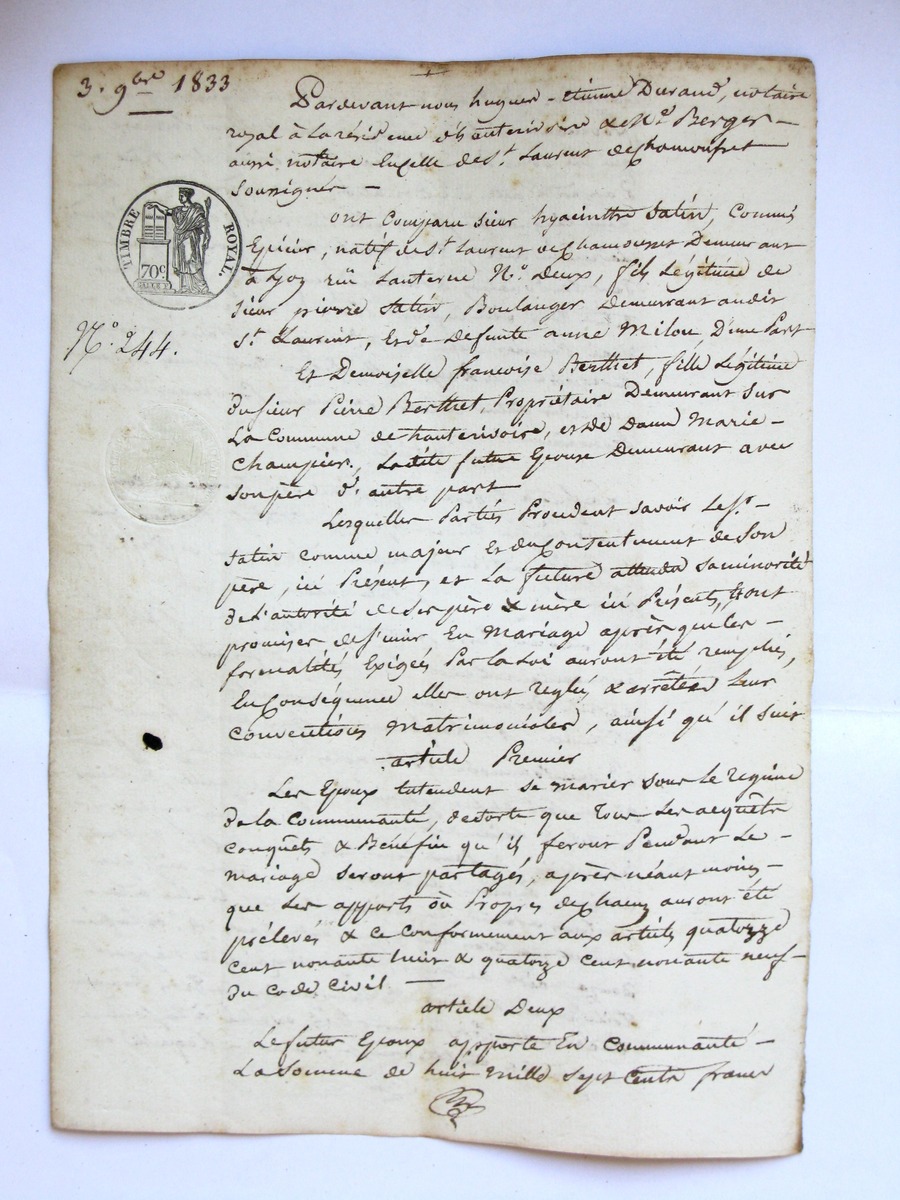 3. 9bre 1833
Pardevant nous hugues - étienne Durand, notaire
royal à la résidence d'hauterivoire & Me. Berger -
aussi notaire En celle de St. Laurent de Chamousset
Soussignés -
TIMBRE ROYAL
70c
N°. 244.
ont Comparu sieur hyacinthe Satin, Commis
Epicier, natif de St. Laurent de Chamousset Demeurant
à Lyon rue Lanterne N°. deux, fils Légitime de
sieur pierre Satin, Boulanger Demeurant audit
St. Laurent, et de défunte anne Milou, D'une Part
Et Demoiselle francoise Berthet, fille Légitime
du sieur Pierre Berthet, Propriétaire Demeurant sur
La Commune de hauterivoire, et de dame Marie -
Champier, Ladite future Epouse Demeurant avec
son père d'autre part
Lesquelles Parties Procedent savoir Le Sr. -
Satin comme majeur Et du Consentement de Son
père, ici Présent, et La future attendu sa minorité
de L'autorité de ses père & mère ici Présents, se sont
promises de s'unir En Mariage après que les -
formalités Exigées Par la Loi auront été remplies,
En Conséquence elles ont reglés & arrêtées Leurs
conventions Matrimoniales, ainsi qu'il suit
article Premier
Les Epoux Entendent se marier sous Le regime
de la Communauté, desorte que Tous Les acquêts
conquêts & Bénéfice qu'il feront Pendant Le -
mariage seront partagés, après néant moins -
que Les apports où Propres de chacun auront été
prélevés & ce Conformement aux articles quatorze
cent nonante huit & quatorze cent nonante neuf -
du code Civil -
article Deux
Le futur Epoux apporte En Communauté -
La Somme de huit mille sept Cents francs